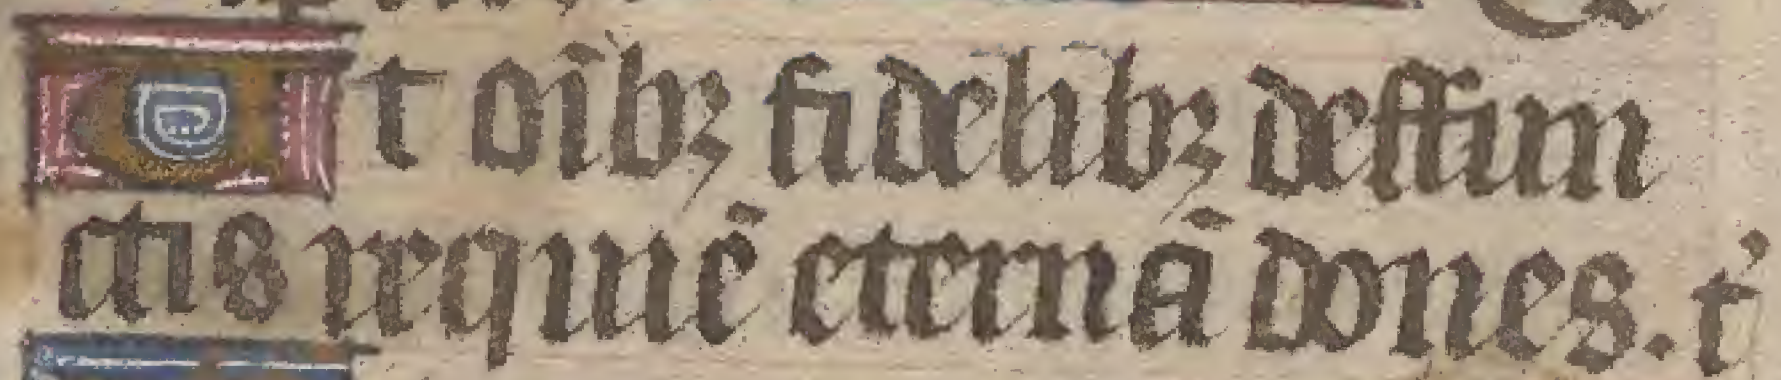 Et oı̄bꝫ fidelibꝫ deffun
ctis requiē eternā dones. t'